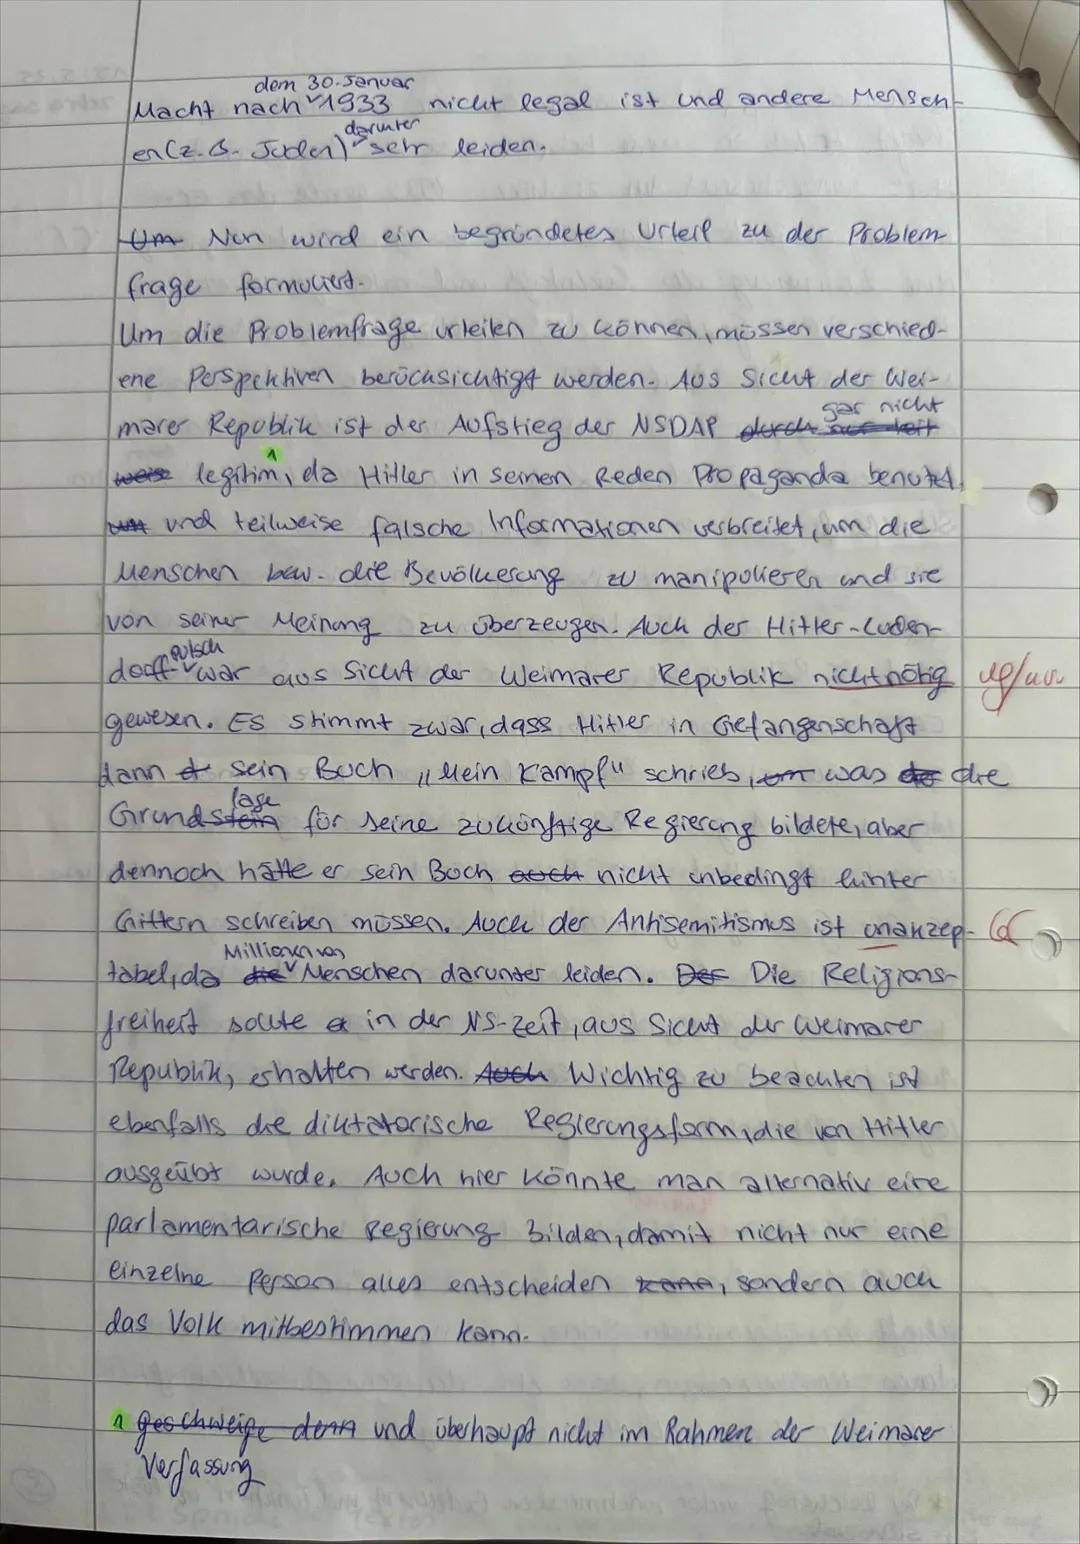 dem 30. Januar
Macht nach 1933 nicht legal ist und andere Mensch-
darunter
en (z.B. Juden) sehr leiden.
Um Nun wird ein begründetes Urteil zu der Problem-
frage formuliert.
Um die Problemfrage urteilen zu können, müssen verschied-
ene Perspektiven berücksichtigt werden. Aus Sicht der Wei-
gar nicht
marer Republik ist der Aufstieg der NSDAP durch
1
legitim, da Hitler in seinen Reden Propaganda benutzt
und teilweise falsche Informationen verbreitet, um die
Menschen bzw. die Bevölkerung zu manipulieren und sie
von seiner Meinung zu überzeugen. Auch der Hitler-Luden-
putsch
dorff war aus Sicht der Weimarer Republik nicht nötig
gewesen. Es stimmt zwar, dass Hitler in Gefangenschaft
dann sein Buch „Mein Kampf" schrieb, um was die
lage
Grundstein für seine zukünftige Regierung bildete, aber
dennoch hätte er sein Buch auch nicht unbedingt hinter
Gittern schreiben müssen. Auch der Antisemitismus ist unakzep-
Millionen von
tabel, da die Menschen darunter leiden. Der Die Religions-
freiheit sollte in der NS-Zeit, aus Sicht der Weimarer
Republik, erhalten werden. Auch Wichtig zu beachten ist
ebenfalls die diktatorische Regierungsform, die von Hitler
ausgeübt wurde. Auch hier könnte man alternativ eine
parlamentarische Regierung bilden, damit nicht nur eine
einzelne Person alles entscheiden kann, sondern auch
das Volk mitbestimmen kann.
1 geschweige denn und überhaupt nicht im Rahmen der Weimarer
Verfassung